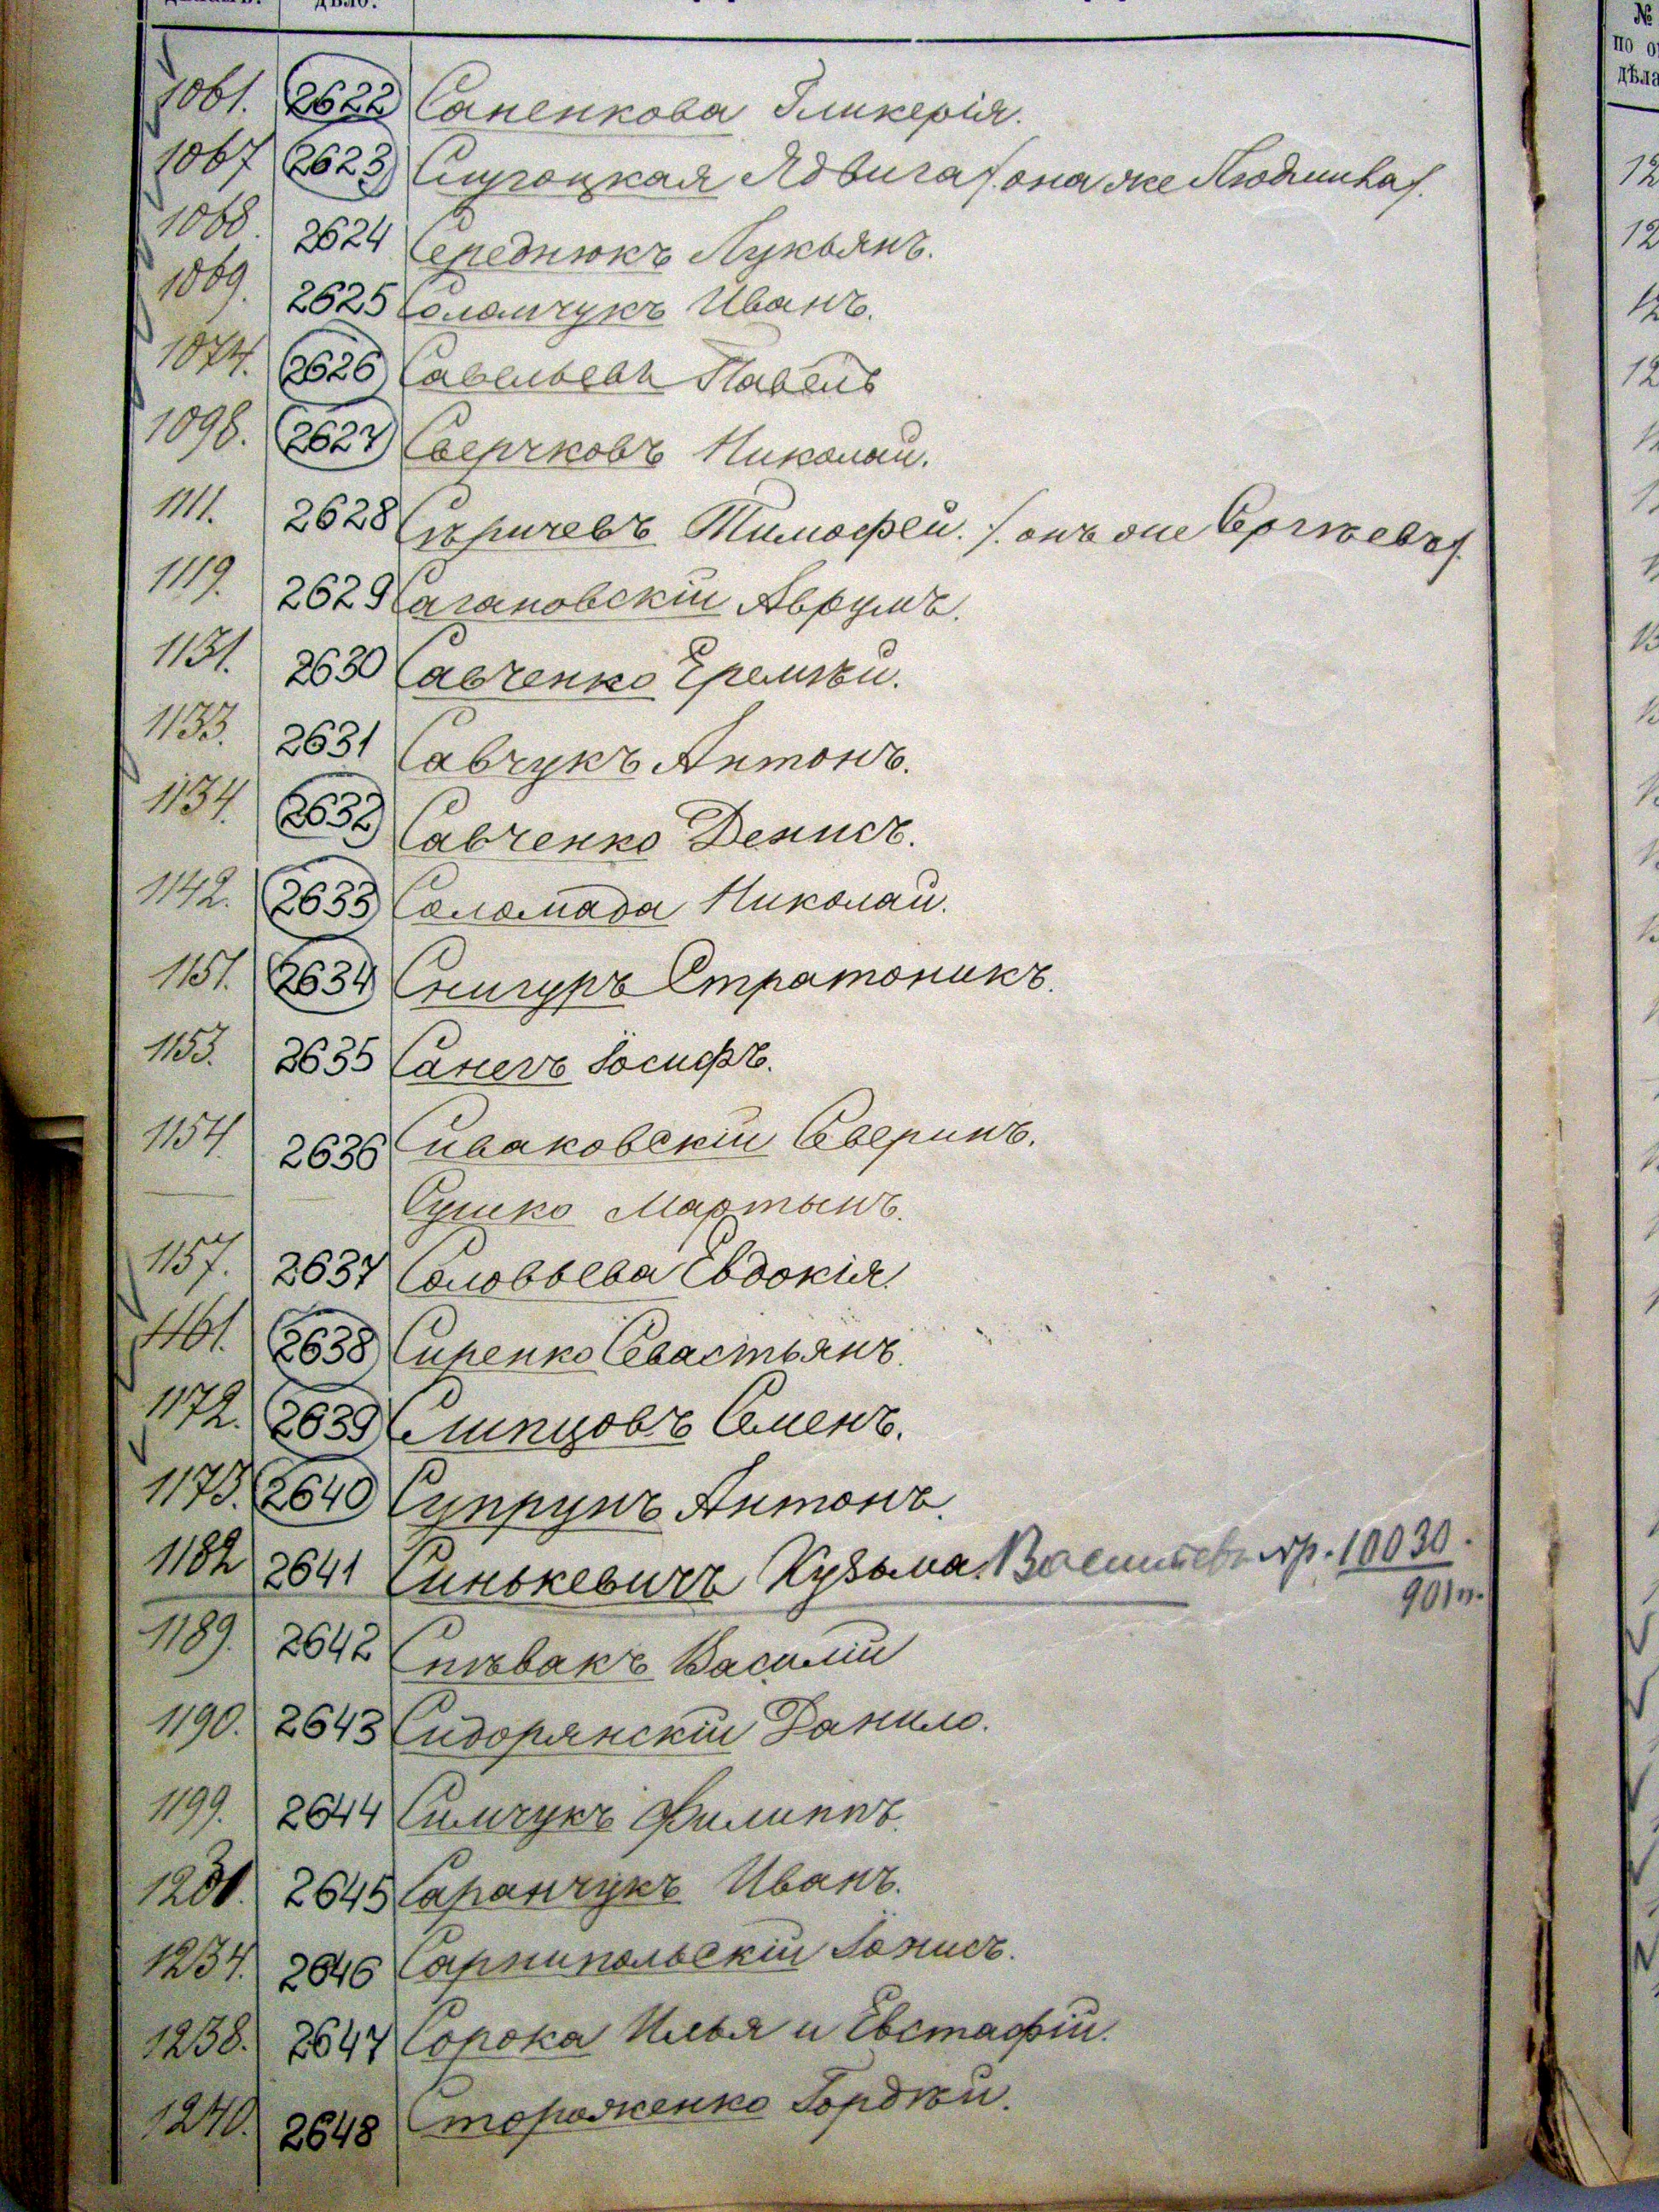 дѣло.
1061. 2622 Саненкова Гликерія.
1067 2623 Слугоцкая Ядвига /. она же Людвика /.
1068. 2624 Середнюкъ Лукьянъ.
1069. 2625 Соломчукъ Иванъ.
1074. 2626 Савельевъ Павелъ
1098. 2627 Сверчковъ Николай.
1111. 2628 Сѣричевъ Тимофей. /. онъ же Сергѣевъ /.
1119. 2629 Сагановскій Аврумъ.
1131. 2630 Савченко Еремѣй.
1133. 2631 Савчукъ Антонъ.
1134. 2632 Савченко Денисъ.
1142. 2633 Соломада Николай.
1151. 2634 Снигуръ Стратоникъ.
1153. 2635 Санечъ Іосифъ.
1154. 2636 Сиваковскій Северинъ.
Сушко Мартынъ.
1157. 2637 Соловьева Евдокія.
1161. 2638 Сиренко Севастьянъ.
1172. 2639 Слипцовъ Семенъ.
1173. 2640 Супрунъ Антонъ.
1182 2641 Синькевичъ Кузьма. Васильевъ пр. 10030.
901 п.
1189. 2642 Спѣвакъ Василій
1190. 2643 Сидорянскій Данило.
1199. 2644 Симчукъ Филиппъ.
2645 Саранчукъ Иванъ.
1234. 2646 Сарнипольскій Іонисъ.
1238. 2647 Сорока Илья и Евстафій.
1240. 2648 Стороженко Гордѣй.
№
по о
дѣла